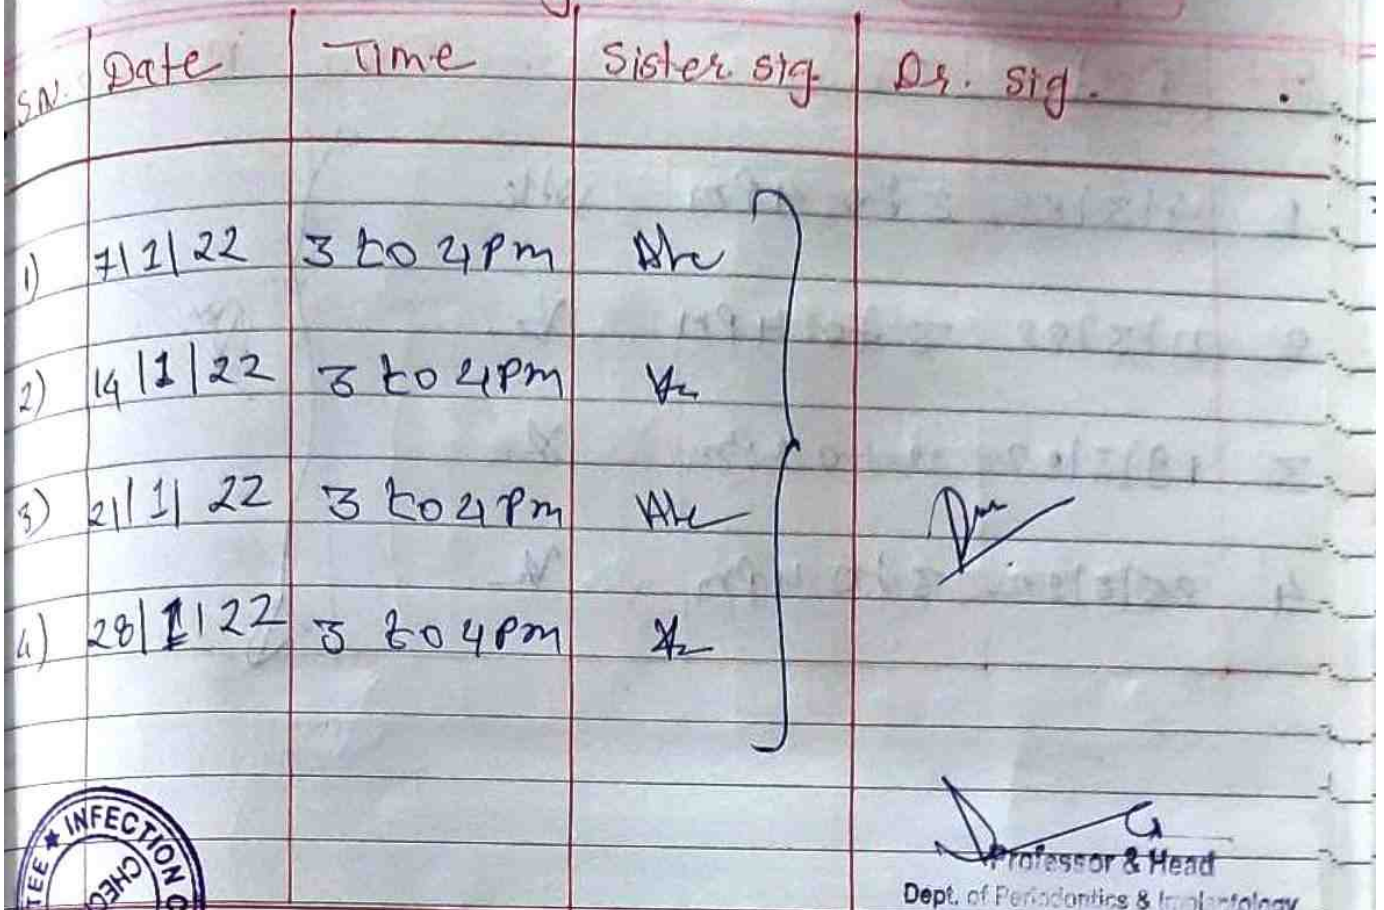 S.N. Date Time Sister sig. Dr. sig.
1) 7/1/22 3 to 4 Pm
2) 14/1/22 3 to 4 Pm
3) 21/1/22 3 to 4 Pm
4) 28/1/22 3 to 4 Pm
INFECTION
CHEC
TEE
Professor & Head
Dept. of Periodontics & Implantology